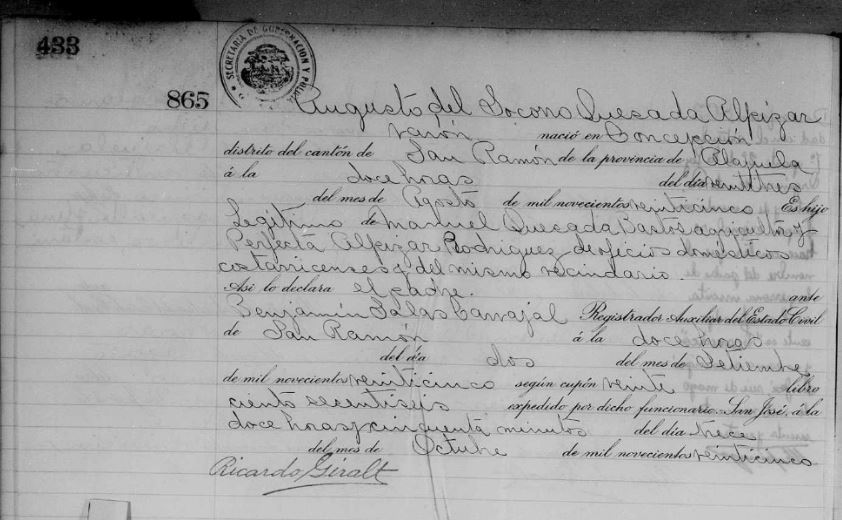 433
SECRETARIA DE GOBERNACION Y POLICIA
865
Augusto del Socorro Quesada Alpizar
varón nació en Concepción
distrito del cantón de San Ramón de la provincia de Alajuela
á la doce horas del día veintitres
del mes de Agosto de mil novecientos veinticinco Es hijo
Legitimo de Manuel Quesada Bastos agricultor y
Perfecta Alpizar Rodriguez de oficios domésticos
costarricenses y del mismo vecindario.
Así lo declara el padre. ante
Benjamín Salas Carvajal Registrador Auxiliar del Estado Civil
de San Ramón á la doce horas
del día dos del mes de Setiembre
de mil novecientos veinticinco según cupón veinte libro
ciento sesentiseis expedido por dicho funcionario. San José, á la
doce horas y cincuenta minutos del día trece
del mes de Octubre de mil novecientos veinticinco
Ricardo Giralt